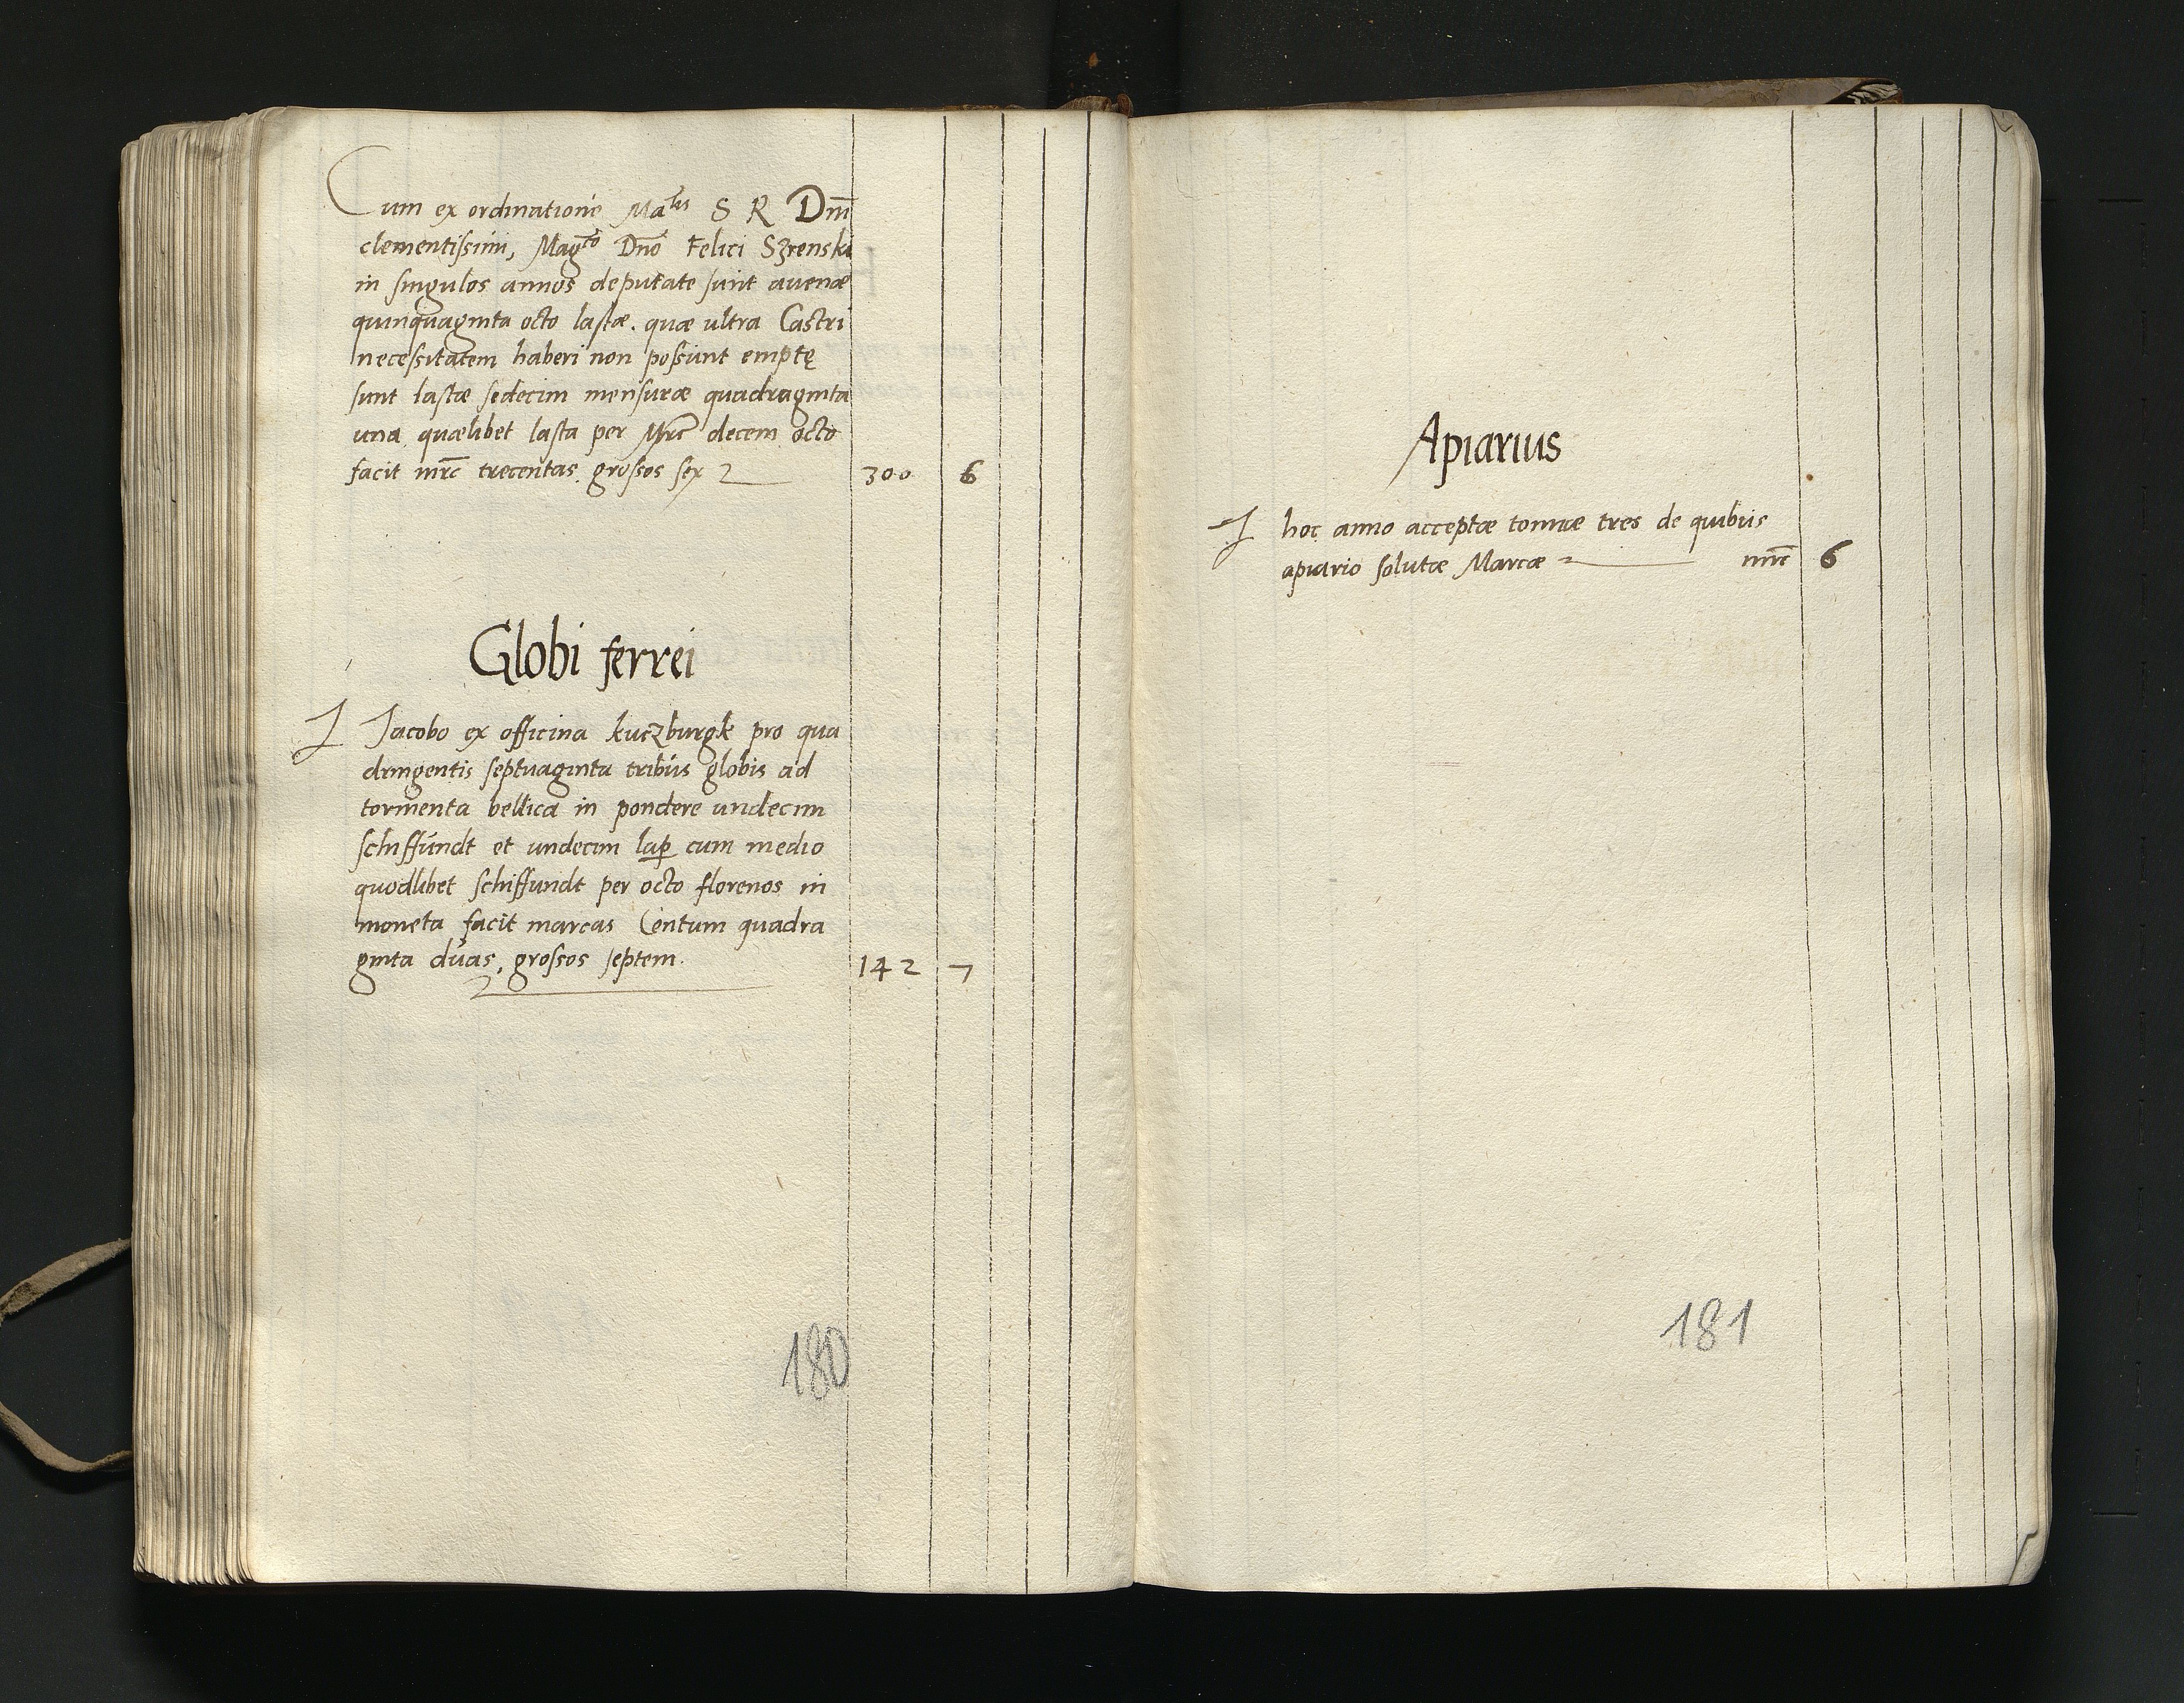 Cum ex ordinatione Ma^tis S R Dnī
clementissimi, Mag^co Dno Felici Szrenski
in singulos annos deputate sunt auenæ
quinquaginta octo lastæ. quæ ultra Castri
necessitatem haberi non possunt emptę
sunt lastæ sedecim mensuræ quadraginta
una quælibet lasta per Mrc decem octo
facit mrc trecentas, grossos sex 300 6
Globi ferrei
Jacobo ex officina kuczburgk pro qua
dringentis septuaginta tribus globis ad
tormenta bellica in pondere undecim
schiffundt et undecim lap cum medio
quodlibet schiffundt per octo florenos in
moneta facit marcas Centum quadra
ginta duas, grossos septem. 142 7
180
Apiarius
hoc anno acceptæ tonnæ tres de quibus
apiario solutæ Marcæ mrc 6
181